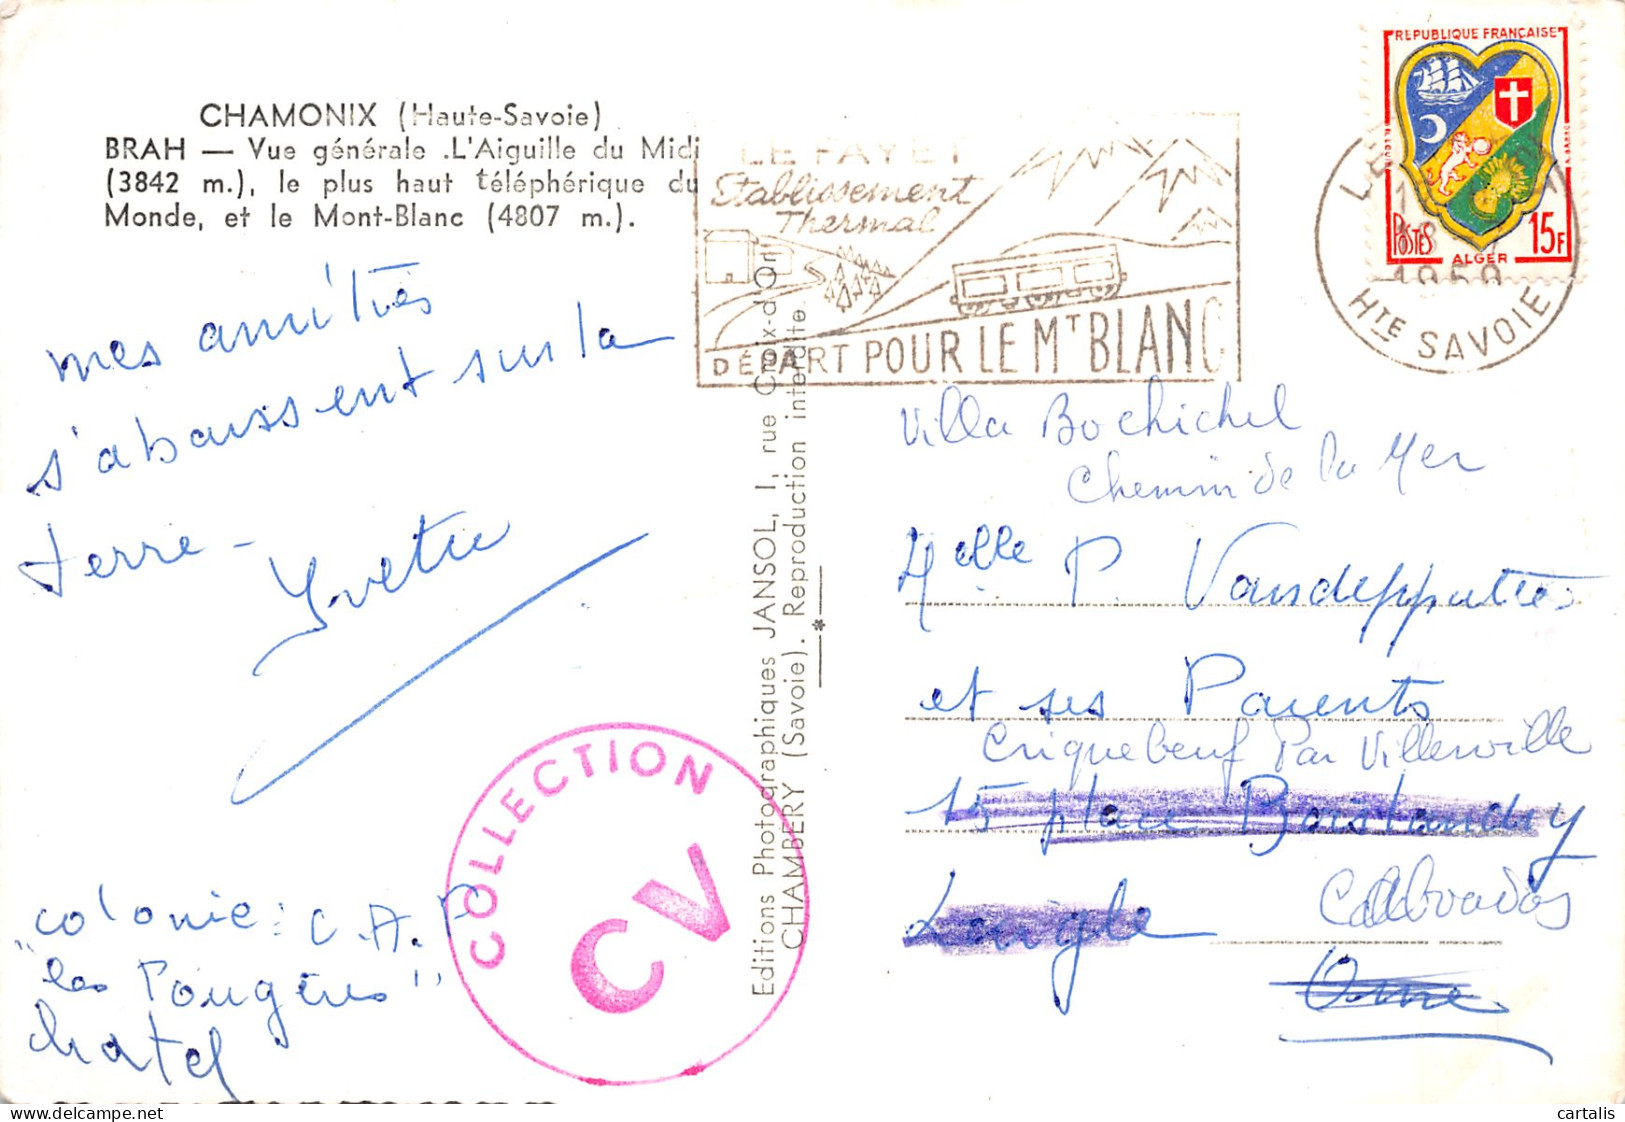 CHAMONIX (Haute-Savoie)
BRAH — Vue générale .L'Aiguille du Midi
(3842 m.), le plus haut téléphérique du
Monde, et le Mont-Blanc (4807 m.).
mes amitiés
s'abaissent sur la
terre -
Yvette
colonie : C.A.P
"les Fougères"
Chatel
COLLECTION
CV
Editions Photographiques JANSOL, 1, rue Croix-d'Or
CHAMBÉRY (Savoie). Reproduction interdite.
LE FAYET
Etablissement
Thermal
DÉPART POUR LE MT BLANC
RÉPUBLIQUE FRANÇAISE
POSTES
ALGER
15F
1959
HTE SAVOIE
Villa Bochichel
Chemin de la Mer
Melle P. Vandeputte
et ses Parents
Criquebeuf par Villerville
15 place Boislandry
Laigle
Calvados
Orne
cartalis